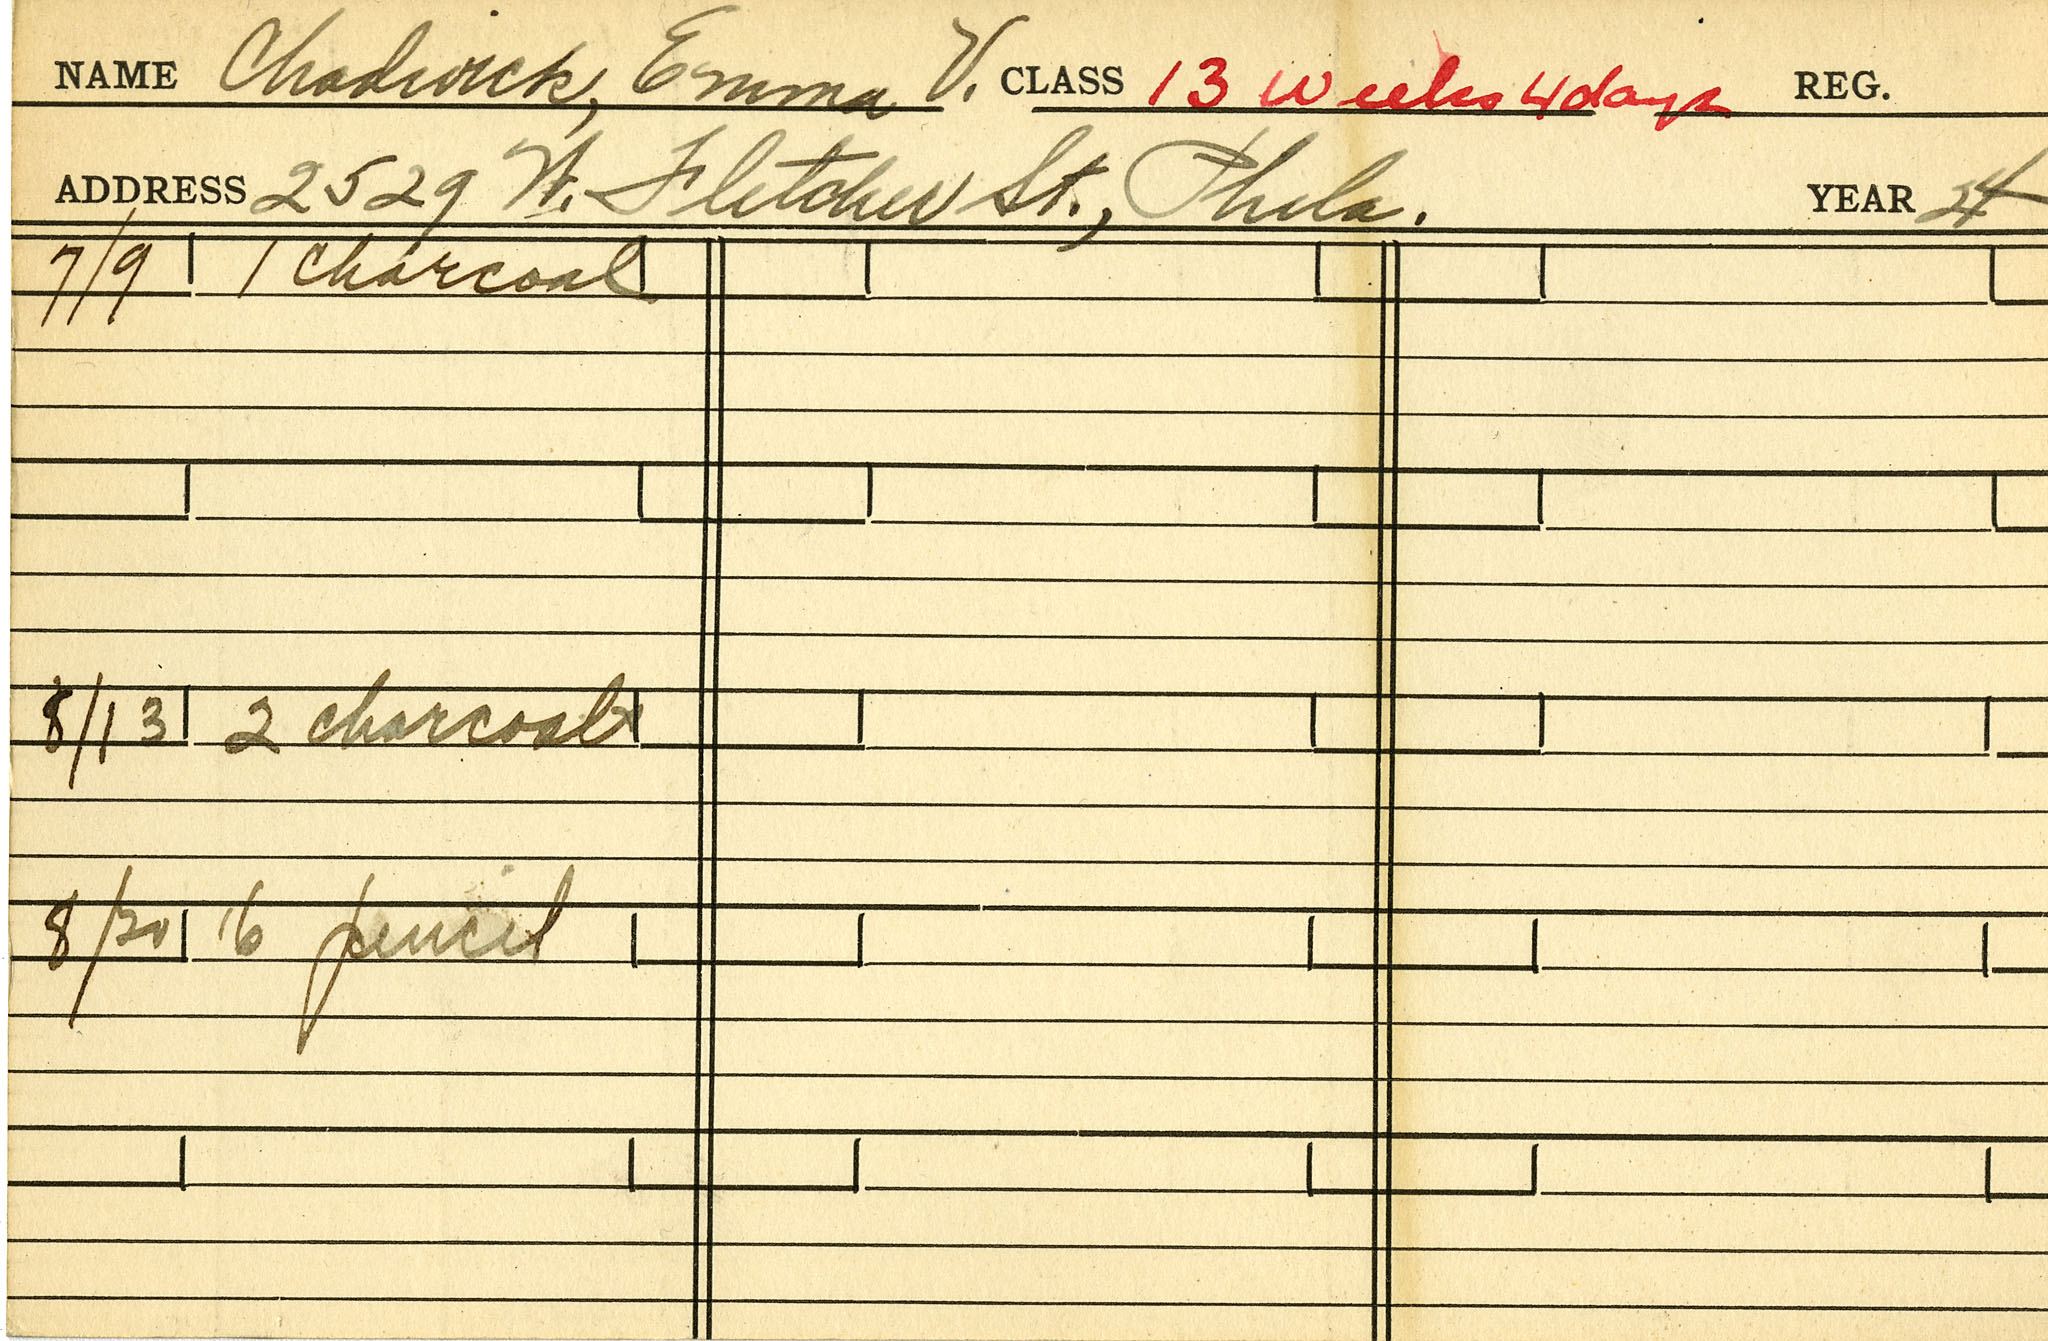 NAME Chadwick, Emma V. CLASS 13 weeks 4 days REG.
ADDRESS 2529 W. Fletcher St., Phila. YEAR 24
7/9 1 charcoal
8/13 2 charcoals
8/20 16 pencil